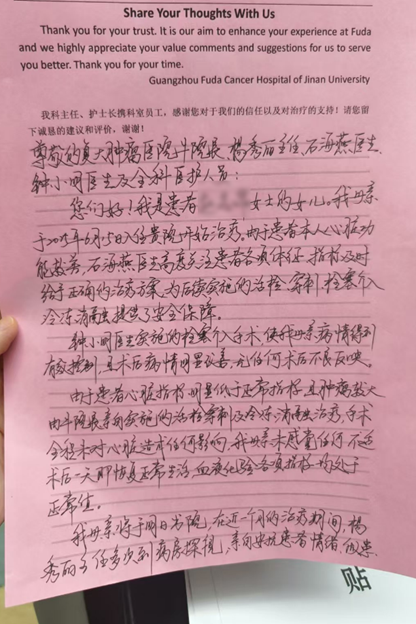 Share Your Thoughts With Us
Thank you for your trust. It is our aim to enhance your experience at Fuda
and we highly appreciate your value comments and suggestions for us to serve
you better. Thank you for your time.
Guangzhou Fuda Cancer Hospital of Jinan University
我科主任、护士长携科室员工，感谢您对于我们的信任以及对治疗的支持！请您留
下诚恳的建议和评价，谢谢！
尊敬的复大肿瘤医院牛院长、杨秀丽主任、石海燕医生、
钟小国医生及全科医护人员：
您们好！我是患者 女士的女儿。我母亲
于2025年6月5日入住贵院开始治疗。由于患者本人心脏功
能较差，石海燕医生高度关注患者各项体征、指标及时
给予正确的治疗方案，为后续实施的活检、穿刺、栓塞介入
冷冻消融提供了安全保障。
钟小国医生实施的栓塞介入手术，使我母亲病情得到
有效控制，且术后病情明显改善，无任何术后不良反映。
由于患者心脏指标明显低于正常指标，且肿瘤较大
由牛院长亲自实施的活检穿刺及冷冻消融治疗，手术
全程未对心脏造成任何影响，我母亲未感觉任何不适
术后一天即恢复正常生活，血液化验各项指标均处于
正常值。
我母亲将于明日出院，在近一个月的治疗期间，杨
秀丽主任多次到病房探视，亲自安抚患者情绪，
贴